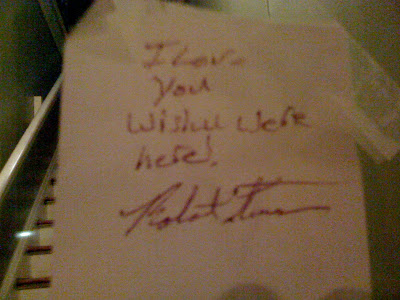 I Love
You
Wish U Were
here!
Robert